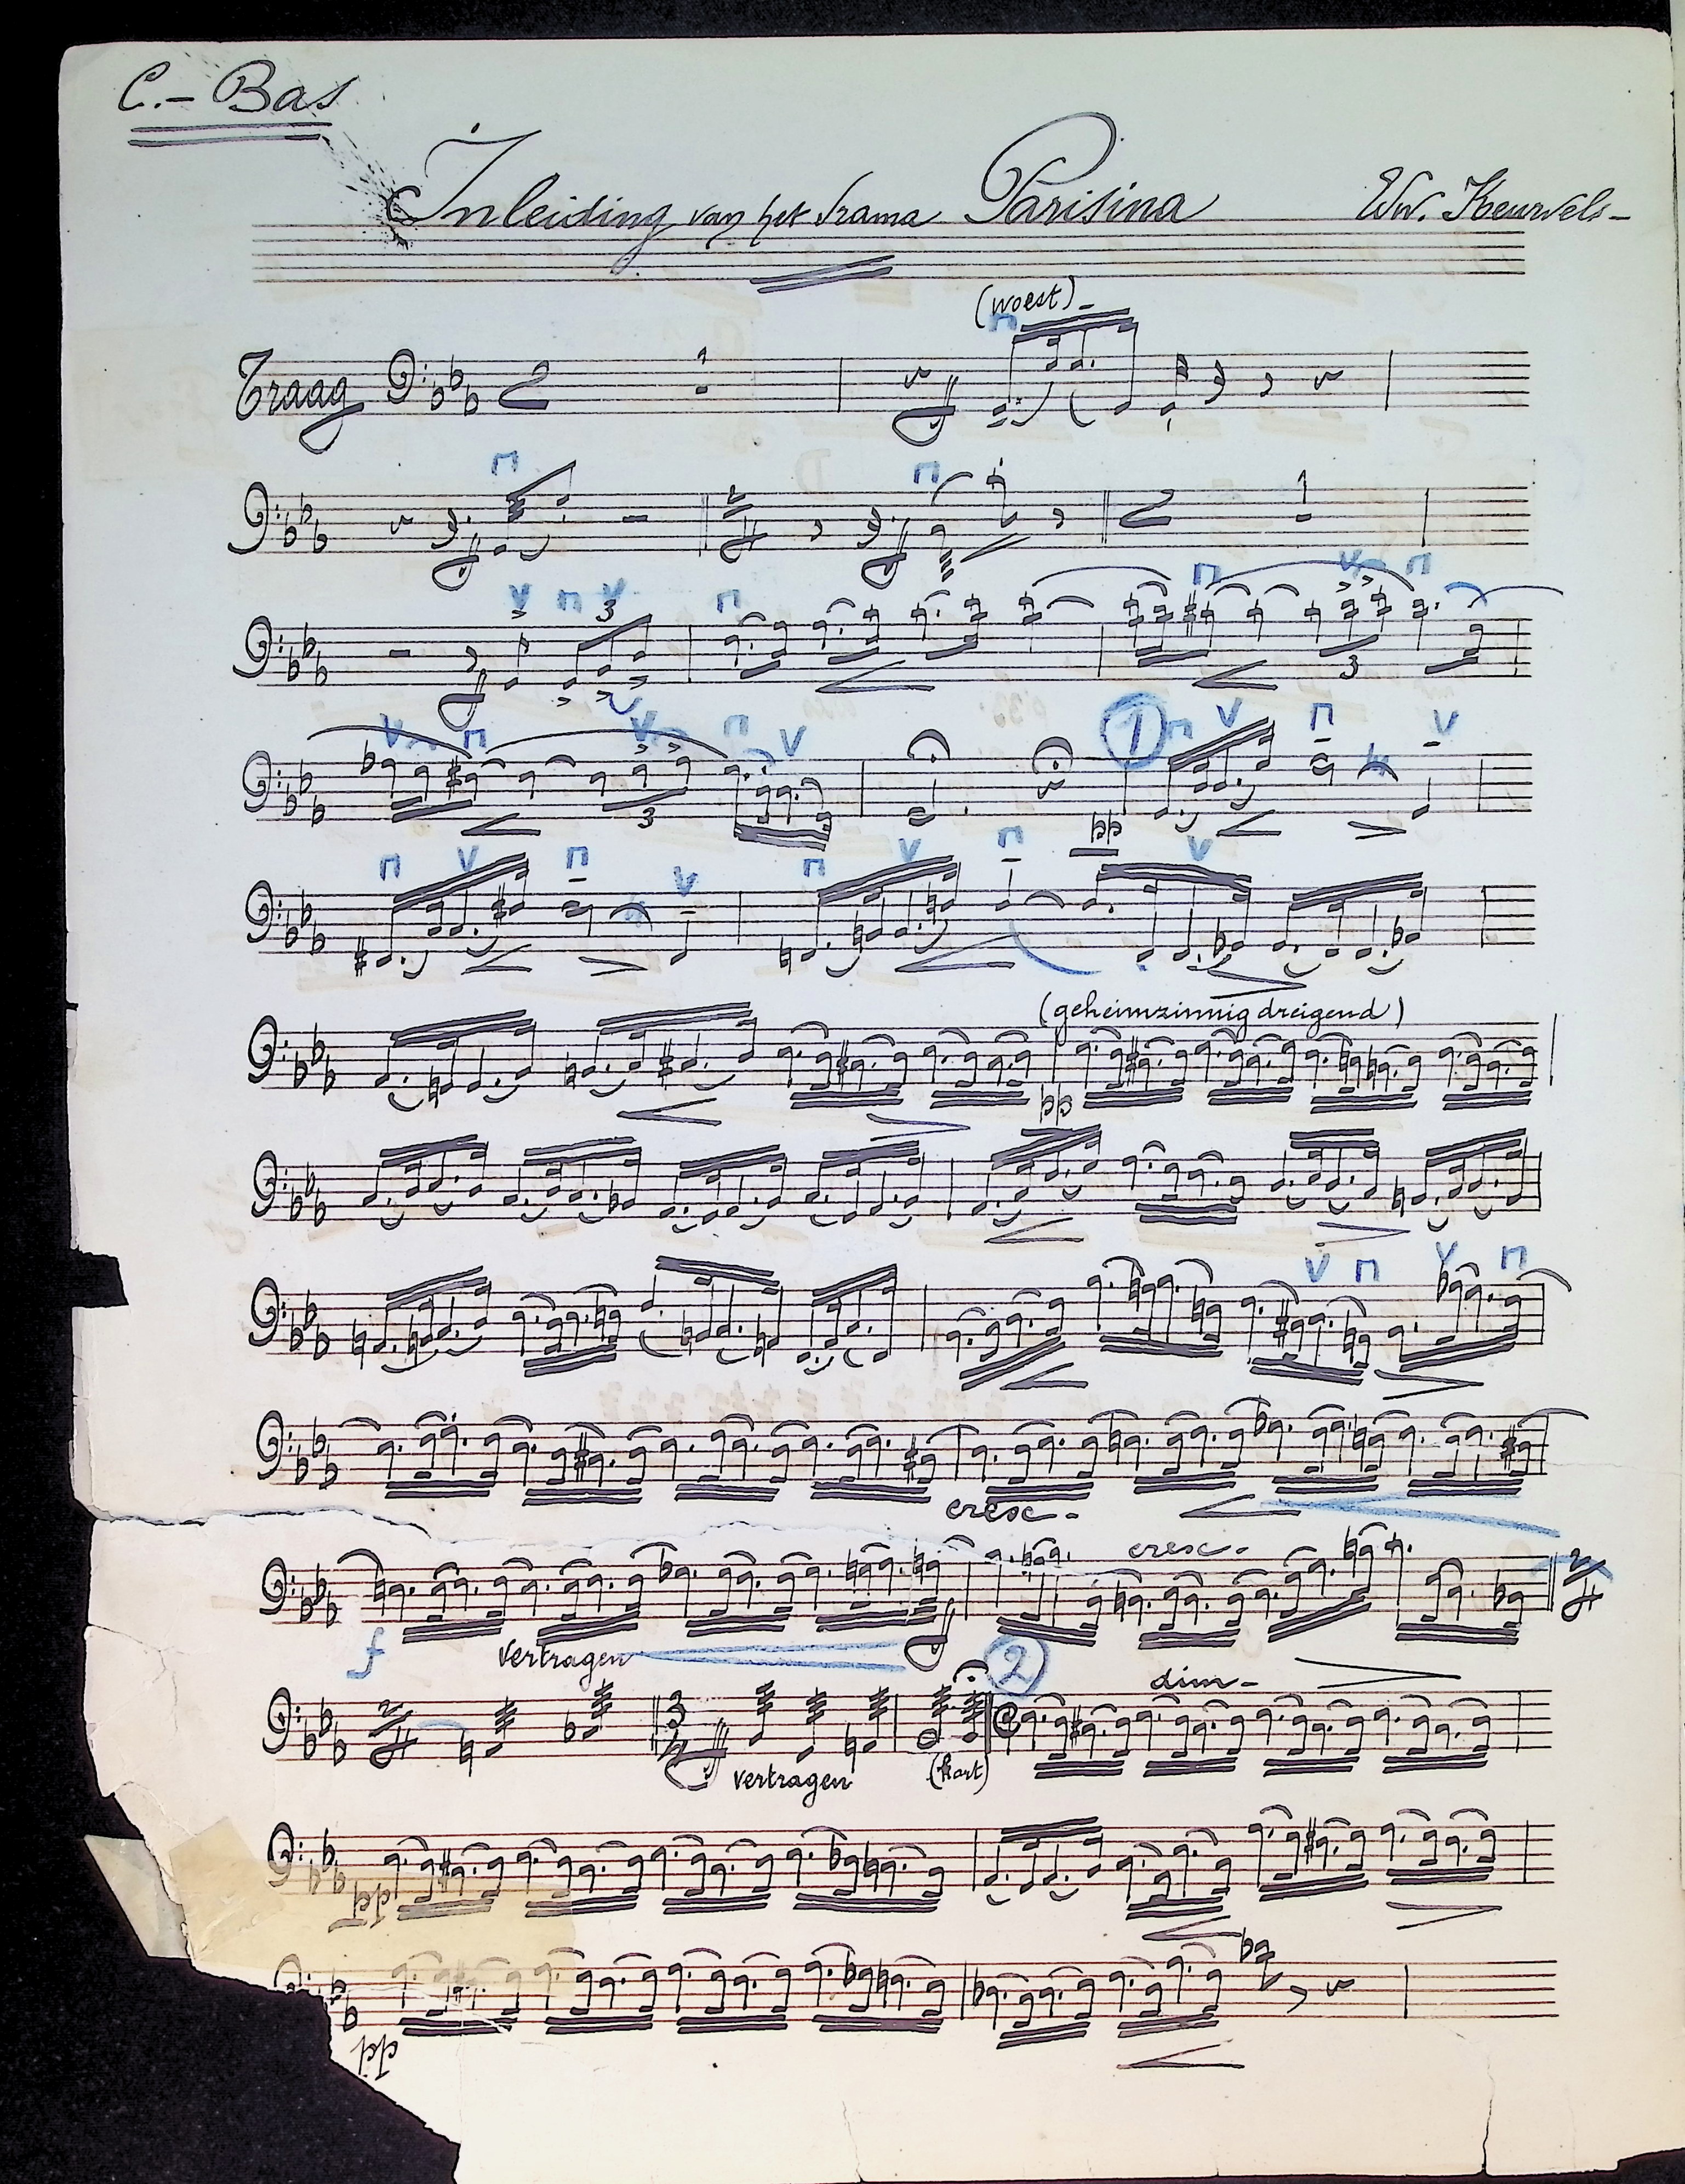 C.- Bas
Inleiding van het drama Parisina Ew. Keurvels-
(woest)-
Traag 2 1
2 2 1
3 3
3 1
pp
(geheimzinnig dreigend)
pp
cresc-
cresc-
f vertragen 2
dim-
2 3 2
vertragen (kort)
pp
pp